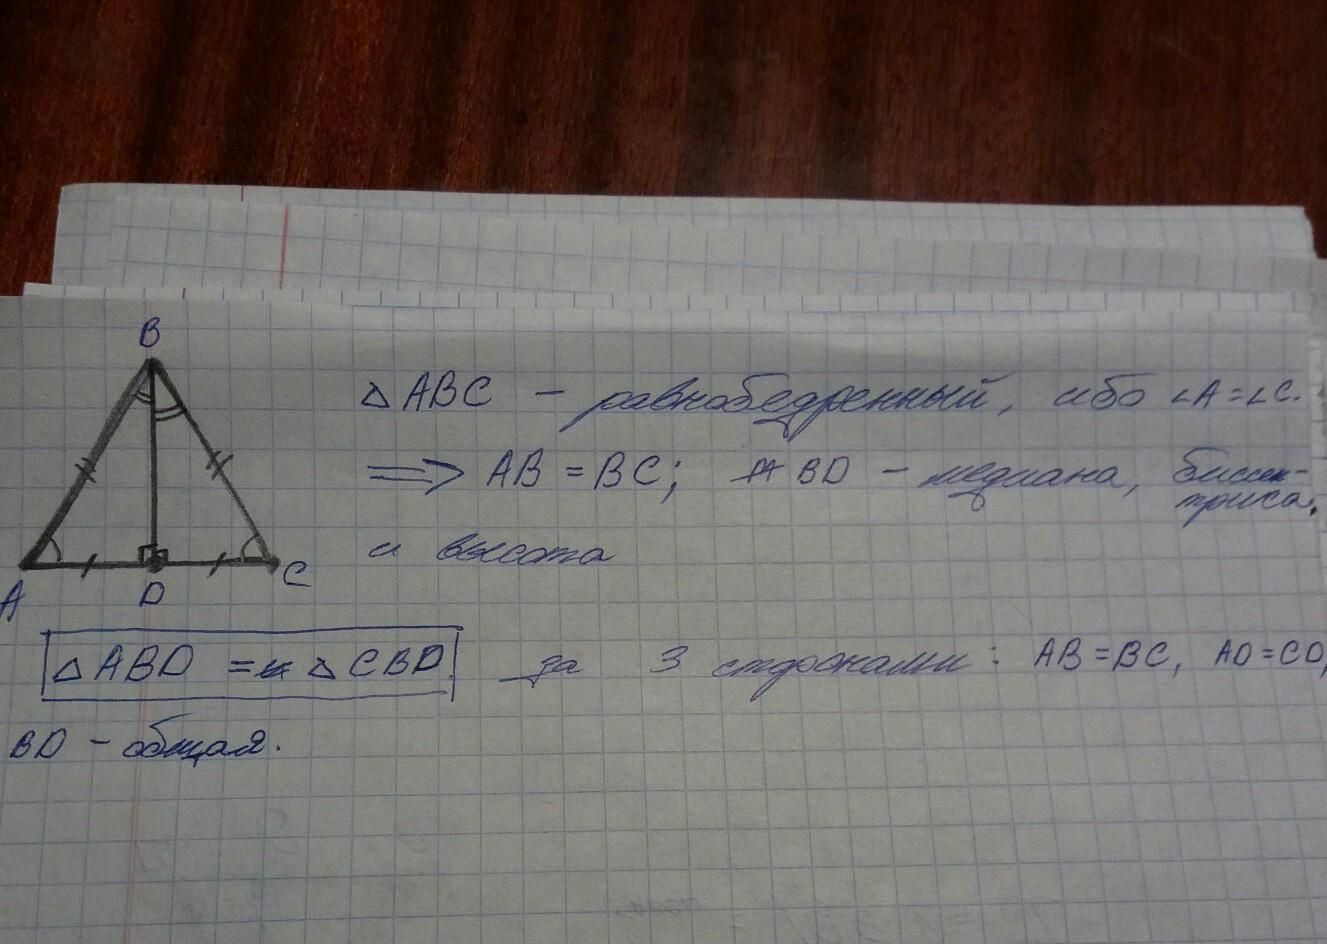 B
△ ABC - равнобедренный, ибо ∠A=∠C.
⟹ AB = BC; BD - медиана, биссек-
триса,
и высота
A D C
△ ABD = △ CBD за 3 сторонами: AB=BC, AD=CD,
BD - общая.